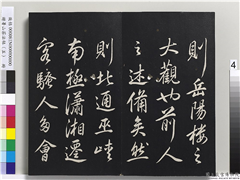 則岳陽樓之
大觀也前人
之述備矣然
則北通巫峽
南極瀟湘遷
客騷人多會
4